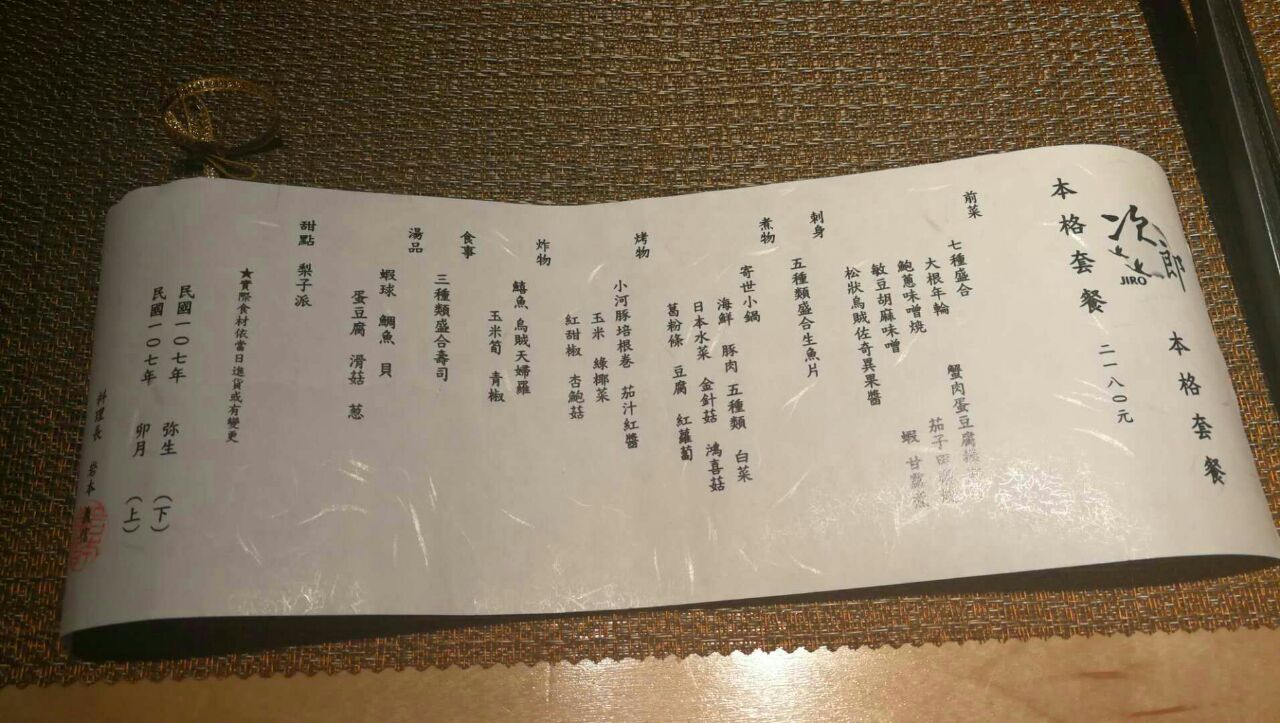 次郎
JIRO
本格套餐
本格套餐 二一八〇元
前菜
七種盛合 蟹肉蛋豆腐
大根年輪 茄子田
鮑蔥味噌燒 蝦 甘露煮
敏豆胡麻味噌
松狀烏賊佐奇異果醬
刺身
五種類盛合生魚片
煮物
寄世小鍋
海鮮 豚肉 五種類 白菜
日本水菜 金針菇 鴻喜菇
葛粉條 豆腐 紅蘿蔔
烤物
小河豚培根卷 茄汁紅醬
玉米 綠椰菜
紅甜椒 杏鮑菇
炸物
鱚魚 烏賊天婦羅
玉米筍 青椒
食事
三種類盛合壽司
湯品
蝦球 鯛魚 貝
蛋豆腐 滑菇 蔥
甜點 梨子派
★實際食材依當日進貨或有變更
民國一〇七年 弥生 (下)
民國一〇七年 卯月 (上)
料理長 岩本